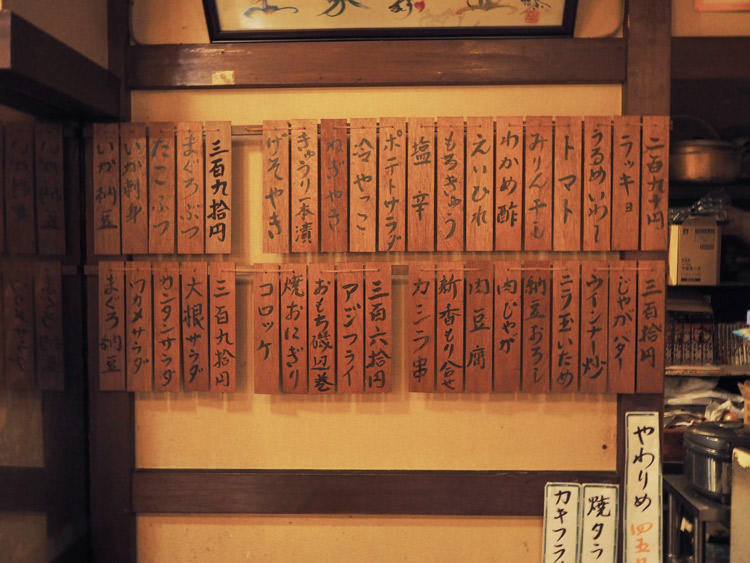 二百九十円
ラッキョ
うるめいわし
トマト
みりん干し
わかめ酢
えいひれ
もろきゅう
塩辛
ポテトサラダ
冷やっこ
ねぎやき
きゅうり一本漬
げそやき
三百九拾円
まぐろぶつ
たこぶつ
いか刺身
いか納豆
三百拾円
じゃがバター
ウインナー炒
ニラ玉いため
納豆おろし
肉じゃが
肉豆腐
新香もり合せ
カシラ串
三百六拾円
アジフライ
おもち磯辺巻
焼おにぎり
コロッケ
三百九拾円
大根サラダ
カンタンサラダ
ワカメサラダ
まぐろ納豆
やわりめ 四五
焼タラ
カキフラ